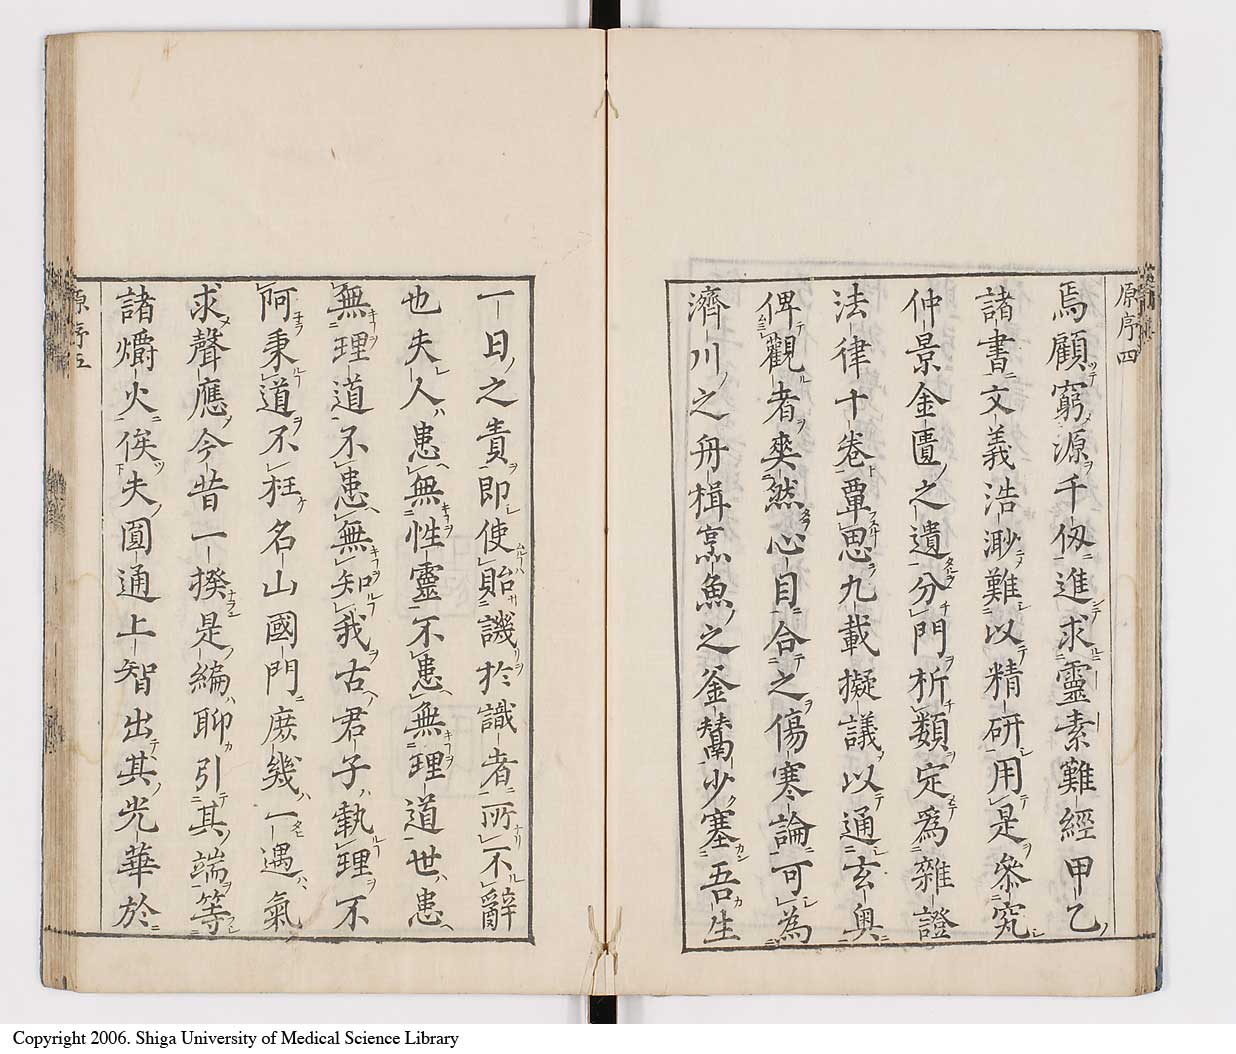 原序四
焉顧窮源千仭進求靈素難經甲乙
諸書文義浩渺難以精研用是叅究
仲景金匱之遺分門析類定爲雜證
法律十卷覃思九載擬議以通玄奥
俾觀者爽然心目合之傷寒論可為
濟川之舟楫烹魚之釜鬵少塞吾生
一日之責即使貽譏於識者所不辭
也夫人患無性靈不患無理道世患
無理道不患無知我古君子執理不
阿秉道不枉名山國門庶幾一遇氣
求聲應今昔一揆是編聊引其端等
諸爝火俟夫圓通上智出其光華於
原序五
Copyright 2006. Shiga University of Medical Science Library